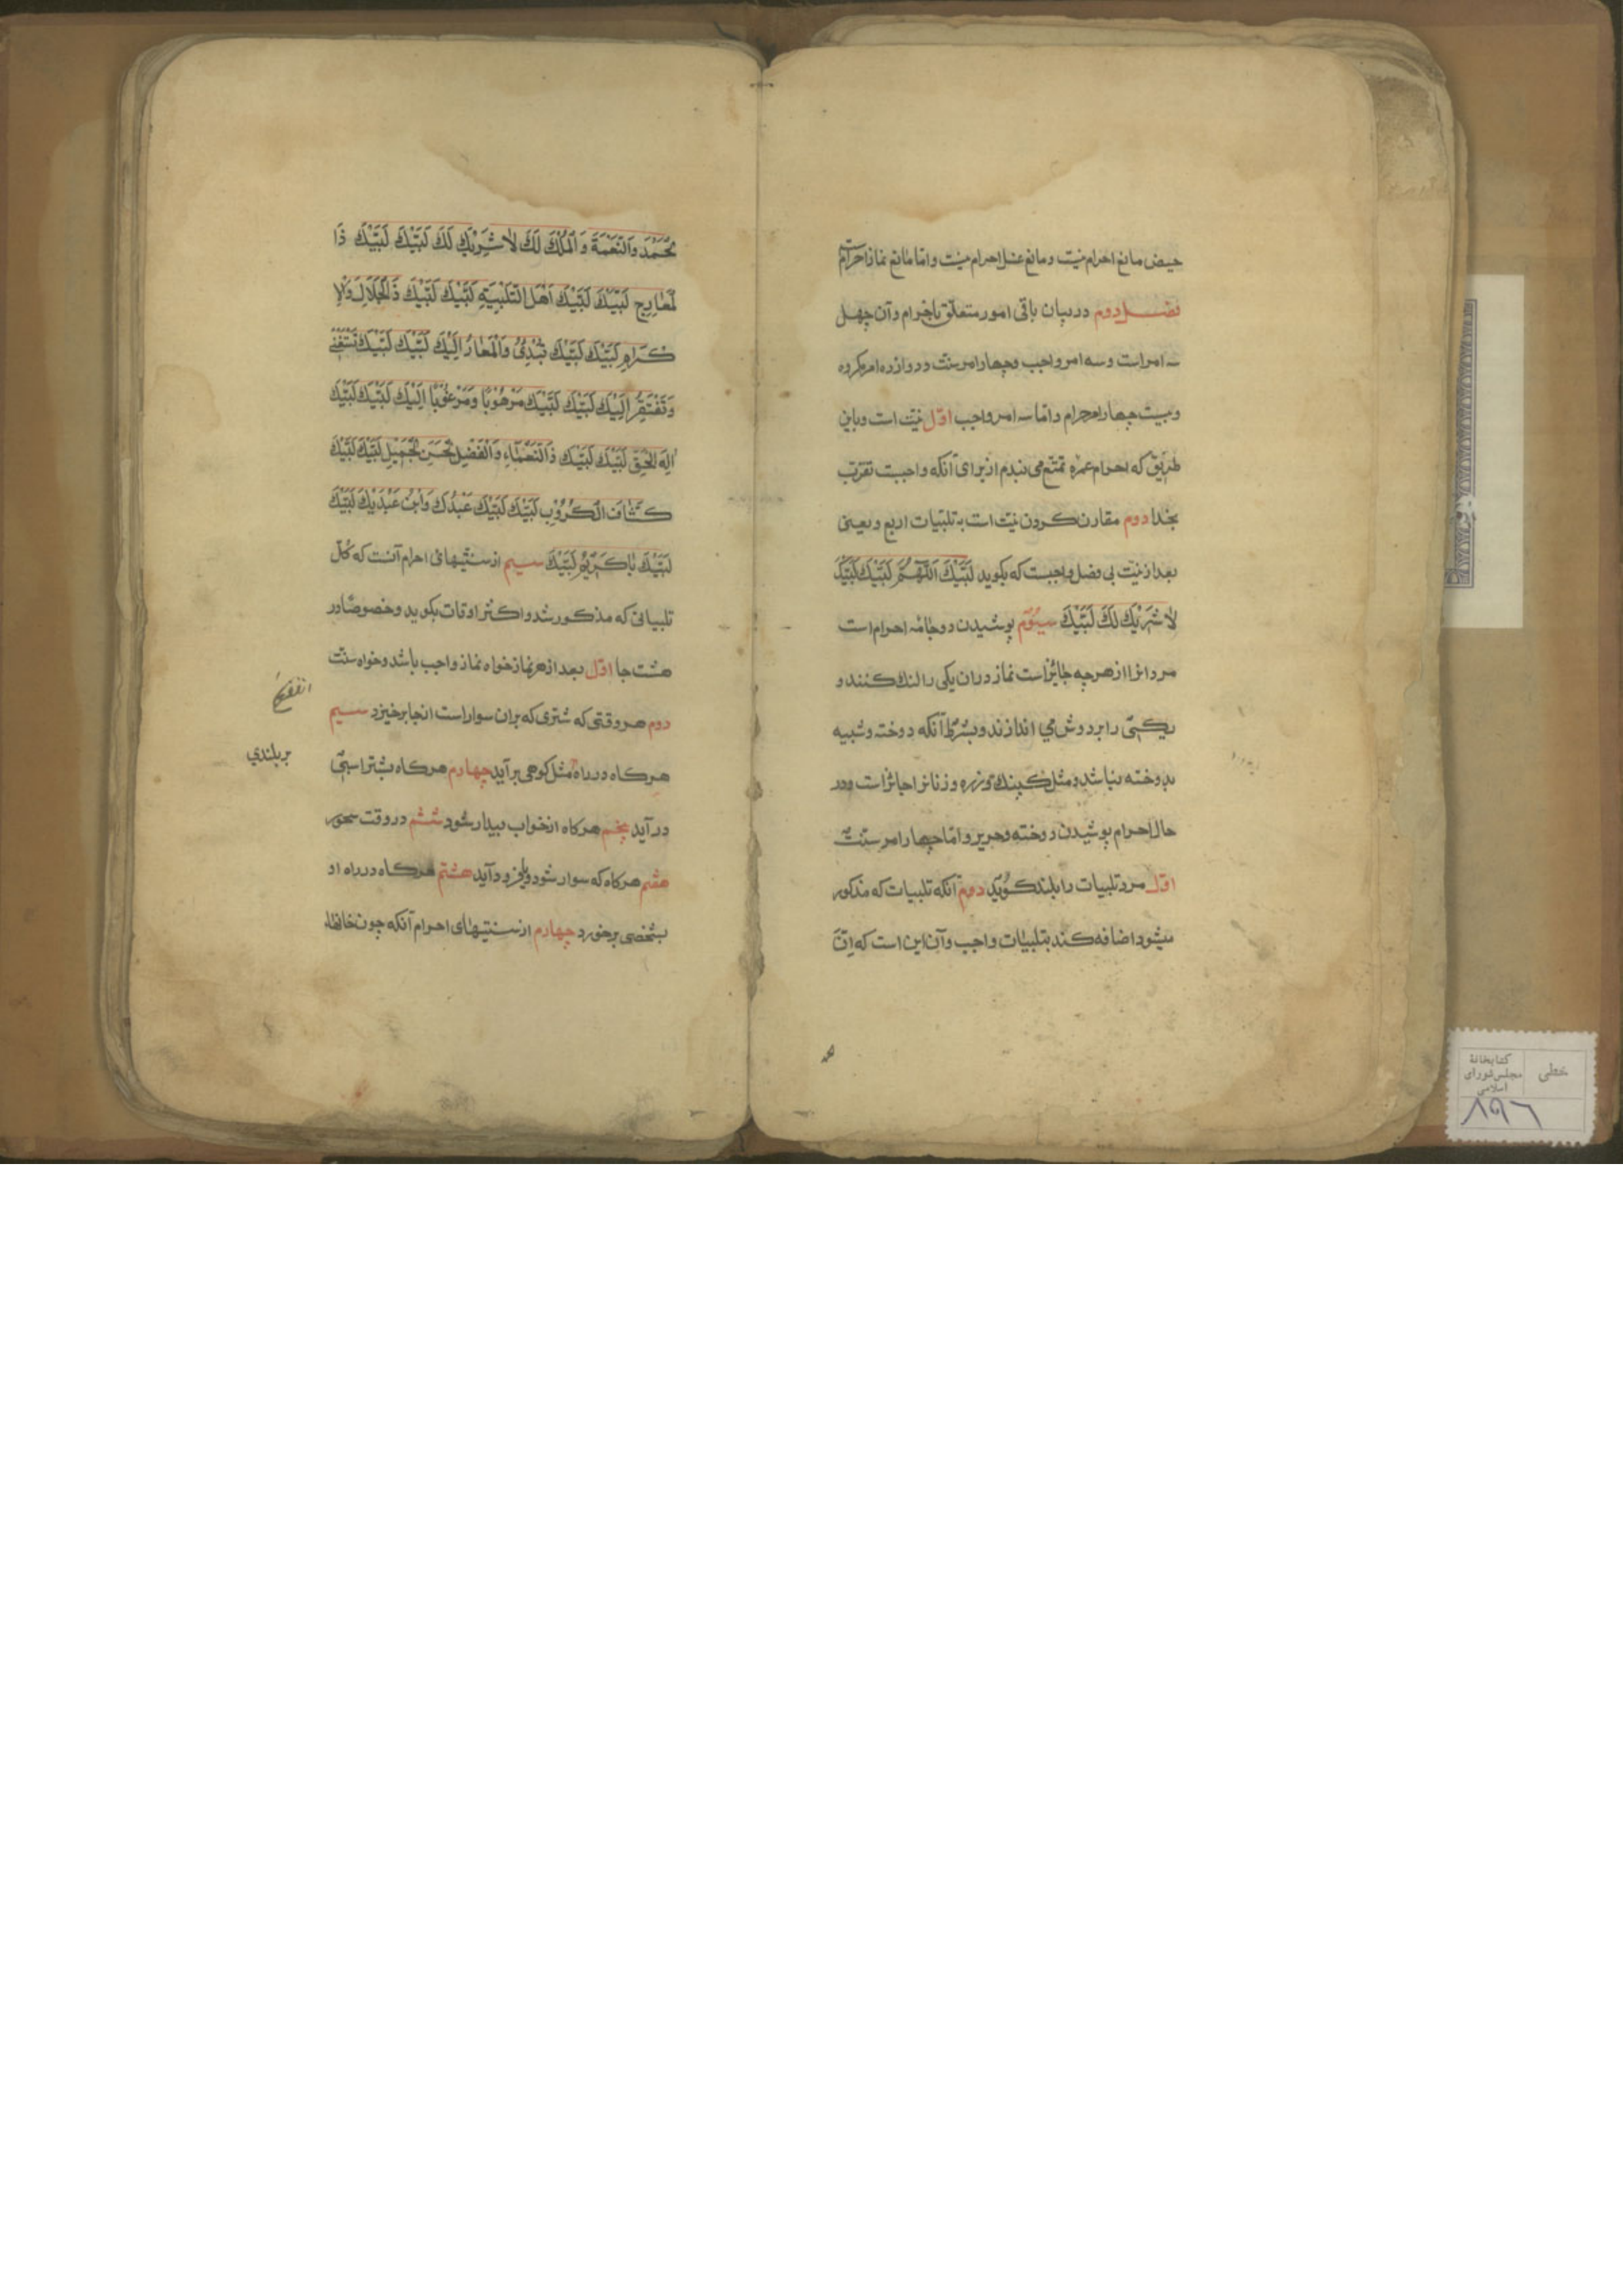 حیض مانع احرام نیت ومانع غسل احرام نیت واما مانع نماز احرامست
فصل دوم دربیان باقی امور متعلق باحرام وآن چهل
سه امراست وسه امر واجب وچهار امر سنت ودوازده امر مکروه
وبیست چهار امر حرام واما سه امر واجب اول نیت است وباین
طریق که احرام عمره تمتع می بندم از برای آنکه واجبست تقرب
بخدا دوم مقارن کردن نیت است بتلبیات اربع ویعنی
بعد از نیت بی فصل واجبست که بکوید لَبَّیْكَ اَللّٰهُمَّ لَبَّیْكَ لَبَّیْكَ
لاٰ شَرِیْكَ لَكَ لَبَّیْكَ سیئوم پوشیدن دو جامه احرام است
مردانرا از هرچه جایزاست نماز دران یکی را لنك کنند و
یکیی را بردوش می اندازند وبشرط آنکه دوخته وشبیه
بدوخته نباشد ومثل کپنك وزره وزنانرا جائز است ودر
حال احرام پوشیدن دوخته وحریر واما چهار امر سنت
اول مرد تلبیات را بلند کوید دوم آنکه تلبیات که مذکور
میشود اضافه کند بتلبیات واجب وآن این است که اِنَّ
لحَمْدَ وَالنِّعْمَةَ وَالْمُلْكَ لَكَ لاٰ شَرِیْكَ لَكَ لَبَّیْكَ لَبَّیْكَ ذَا
لْمَعٰارِجِ لَبَّیْكَ لَبَّیْكَ اَهْلَ التَّلْبِیَةِ لَبَّیْكَ لَبَّیْكَ ذَا لْجَلاٰلِ وَالْاِ
کْرَامِ لَبَّیْكَ لَبَّیْكَ تُبْدِئُ وَالْمَعٰادُ اِلَیْكَ لَبَّیْكَ لَبَّیْكَ تَسْتَغْنِی
وَتَفْتَقِرُ اِلَیْكَ لَبَّیْكَ لَبَّیْكَ مَرْهُوْبًا وَمَرْغُوْبًا اِلَیْكَ لَبَّیْكَ لَبَّیْكَ
اِلٰهَ الْحَقِّ لَبَّیْكَ لَبَّیْكَ ذَا النَّعْمٰاءِ وَالْفَضْلِ لْحَسَنِ لْجَمِیْلِ لَبَّیْكَ لَبَّیْكَ
کَشّٰافَ الْکُرُوْبِ لَبَّیْكَ لَبَّیْكَ عَبْدُكَ وَابْنُ عَبْدَیْكَ لَبَّیْكَ
لَبَّیْكَ یٰا کَرِیْمُ لَبَّیْكَ سیم از سنتیهائی احرام آنست که کُلّ
تلبیاتی که مذکور شد واکثر اوقات بکوید وخصوصًا در
هشت جا اول بعد از هر نماز خواه نماز واجب باشد وخواه سنت
دوم هر وقتی که شتری که بران سوار است انجا برخیزد سیم
هرکاه درراه مثل کوهی برآید چهارم هرکاه بشترا سبی
درآید پنجم هرکاه ازخواب بیدار شود ششم دروقت سحور
هفتم هرکاه که سوار شود ویا فرود آید هشتم هرکاه درراه او
بشخصی برخورد چهارم از سنتیهای احرام آنکه چون خانها
بربلندی
خطی
کتابخانهٔ
مجلس شورای
اسلامی
۸۹۶